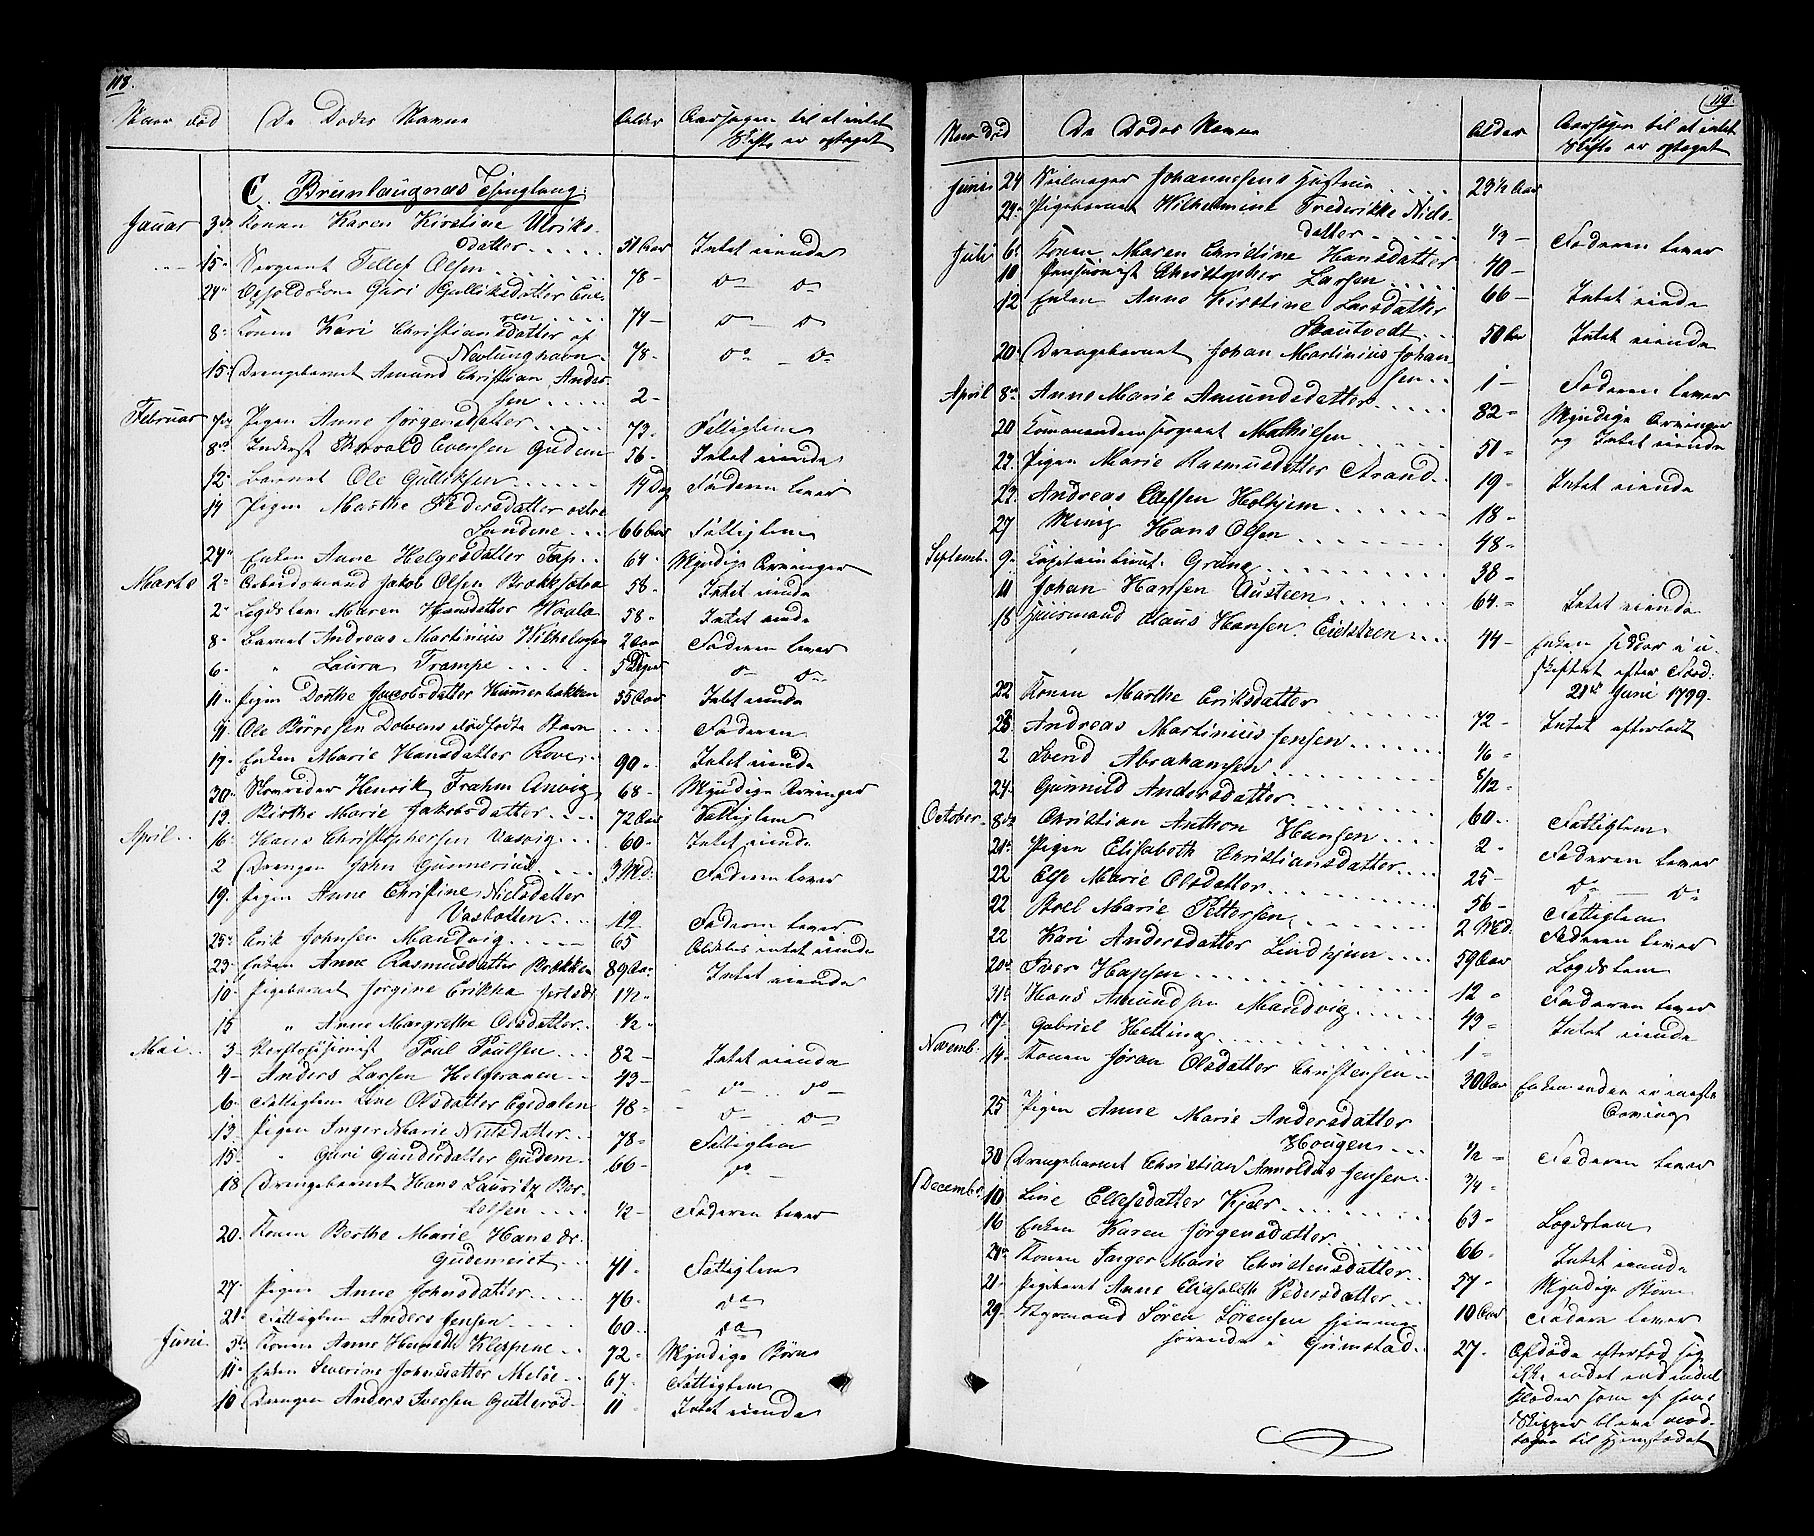 118.
Naar død De Dødes Navne Alder Aarsagen til at intet
Skifte er optaget
C. Brunlaugnæs Tinglaug:
Januar 3die Konen Karen Kirstine Ulriks-
datter 51 Aar Intet eiende
15 Sergeant Tellef Olsen 78 - do do
24 Guri Gulliksdatter
74 - do do
8 Konen Kari Christiansdatter af
Nevlunghavn 78 - do do
15 Drengebarnet Amund Christian Ander-
sen 2 -
Februar 7de Pigen Anne Jørgensdatter 73 - Fattiglem
8de Inderst Thorvald Evensen Gudem 56 - Intet eiende
12 Barnet Ole Gulliksen 14 Dag Faderen lever
14 Pigen Marthe Pedersdatter østre
Sandene 66 Aar Fattiglem
24 Enken Anne Helgesdatter Tap 64 - Myndige Arvinger
Marts 2 Arbeidsmand Jakob Olsen 58 - Intet eiende
2 Legdslem Maren Hansdatter Waale 58 - Intet eiende
8 Barnet Andreas Martinius Wilhelmsen 2 Aar Faderen lever
6 " Laura Trampe 5 Dage do do
11 Pigen Dorthe Jacobsdatter Hummerbakken 55 Aar Intet eiende
9 Ole Børresen Dolvens dødfødte Barn Faderen
19 Enken Marie Hansdatter Rove 90 - Intet eiende
30 Skomager Henrik Frahm Anvig 68 - Myndige Arvinger
19 Birthe Marie Jakobsdatter 72 Aar Fattiglem
April 16 Hans Christophersen Vasvig 60 - Intet eiende
2 Drengen John Gunnerius 3 Md. Faderen lever
19 Pigen Anne Christine Nielsdatter
Vasbotten 19 Faderen lever
25 Erik Johnsen Mandvig 65 intet eiende
23 Enken Anne Rasmusdatter Brekken 89 Aar Intet eiende
10 Pigebarnet Jørgine Erikka 1½ -
15 " Anne Margrethe Olsdatter ½ -
Mai 3 Poul Poulsen 82 - Intet eiende
4 Anders Larsen Helgeraaen 43 - do do
6 Fattiglem Line Olsdatter Egedalen 48 - do do
13 Pigen Inger Marie Nielsdatter 78 - Fattiglem
15 " Guri Gundersdatter Gudem 66 - do
18 Drengebarnet Hans Lauritz Ber-
½ - Faderen lever
20 Konen Berthe Marie Hansdr.
Gudemeiet 41 - Fattiglem
27 Pigen Anne Johnsdatter 76 - do
21 Fattiglem Anders Jensen 60 - do
Juni 5te Konen Anne 72 - Myndige Børn
11 Enken Severine Johnsdatter Meløe 67 - Fattiglem
10 Drengen Anders Iversen Gutterød 11 - Intet eiende
119.
Naar død De Dødes Navne Alder Aarsagen til at intet
Skifte er optaget
Juni 24 Seilmager Johannesens Hustrue 29½ Aar
29 Pigebarnet Wilhelmine Frederikke Niels-
datter ⅓ - Faderen lever
Juli 6 Konen Maren Christine Hansdatter 40 -
10 Pensionist Christopher Larsen 66 - Intet eiende
12 Enken Anne Kirstine Larsdatter
Skautvedt 50 Aar Intet eiende
20 Drengebarnet Johan Martinius Johan-
sen 1 - Faderen lever
April 8de Anne Marie Amundsdatter 82 - Myndige Arvinger
og Intet eiende
20 Commandeursergeant Mathisen 51 -
22 Pigen Marie Rasmusdatter Strand 19 - Intet eiende
22 Andreas Ellefsen Holhjem 18 -
27 Hans Olsen 48 -
Septemb. 9 Capitainlieut. Grüng 38 -
11 Johan Hansen Austeen 64 - Intet eiende
18 Huusmand Claus Hansen Eidsteen 44 - Enken sidder i u-
skiftet efter
21de Juni 1799.
22 Konen Marthe Eriksdatter 72 - Intet efterladt
28 Andreas Martinius Jensen ⅙ -
2 Svend Abrahamsen 5/12
24 Gunnild Andersdatter 60 - Fattiglem
October 8de Christian Anthon Hansen 2 - Faderen lever
21 Pigen Elisabeth Christiansdatter 25 - do do
22 Else Marie Olsdatter 56 - Fattiglem
22 Boel Marie Pettersen 2 Md. Faderen lever
22 Kari Andersdatter Lindhjem 59 Aar Legdslem
20 Iver Hansen 12 - Faderen lever
31 Hans Amundsen Mandvig 49 - Intet eiende
17 Gabriel Hetting 1 -
Novemb. 14 Konen Jøran Olsdatter Christensen 30 Aar Enkemanden er eneste
Arving
25 Pigen Anne Marie Andersdatter
Hougen ½ - Faderen lever
30 Drengebarnet Christian Arnoldus Jensen ¾ -
December 10 Line Ellefsdatter Kjær 63 - Legdslem
16 Enken Karen Jørgensdatter 66 - Intet eiende
21 Konen Inger Marie Christensdatter 57 - Myndige Børn
21 Pigebarnet Anne Elisabeth Pedersdatter 10 Aar Faderen lever
29 Søren Sørensen hjemme-
hørende i Grimstad 27 - Afdøde efterlod sig
ikke andet end endel
Klæder som af hans
Skipper bleve mod-
tagne til Hjemstedet